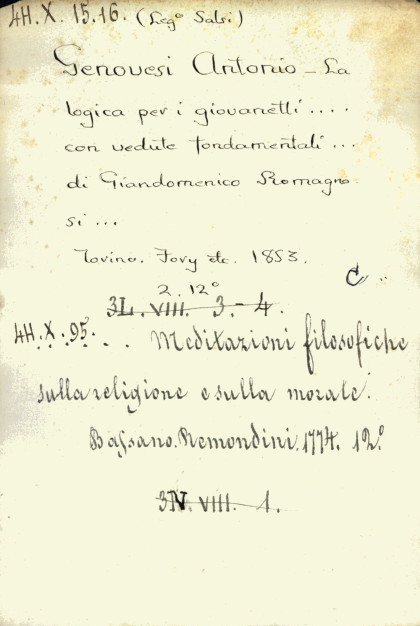 4H. X. 15.16. (Leg.º Salvi)
Genovesi Antonio – La
logica per i giovanetti ....
con vedute fondamentali ...
di Giandomenico Romagno-
si ...
Torino. Fory etc. 1853.
2. 12º
C
3L. VIII. 3. - 4.
4H. X. 95. . . Meditazioni filosofiche
sulla religione e sulla morale.
Bassano. Remondini. 1774. 12º.
3N. VIII. 1.